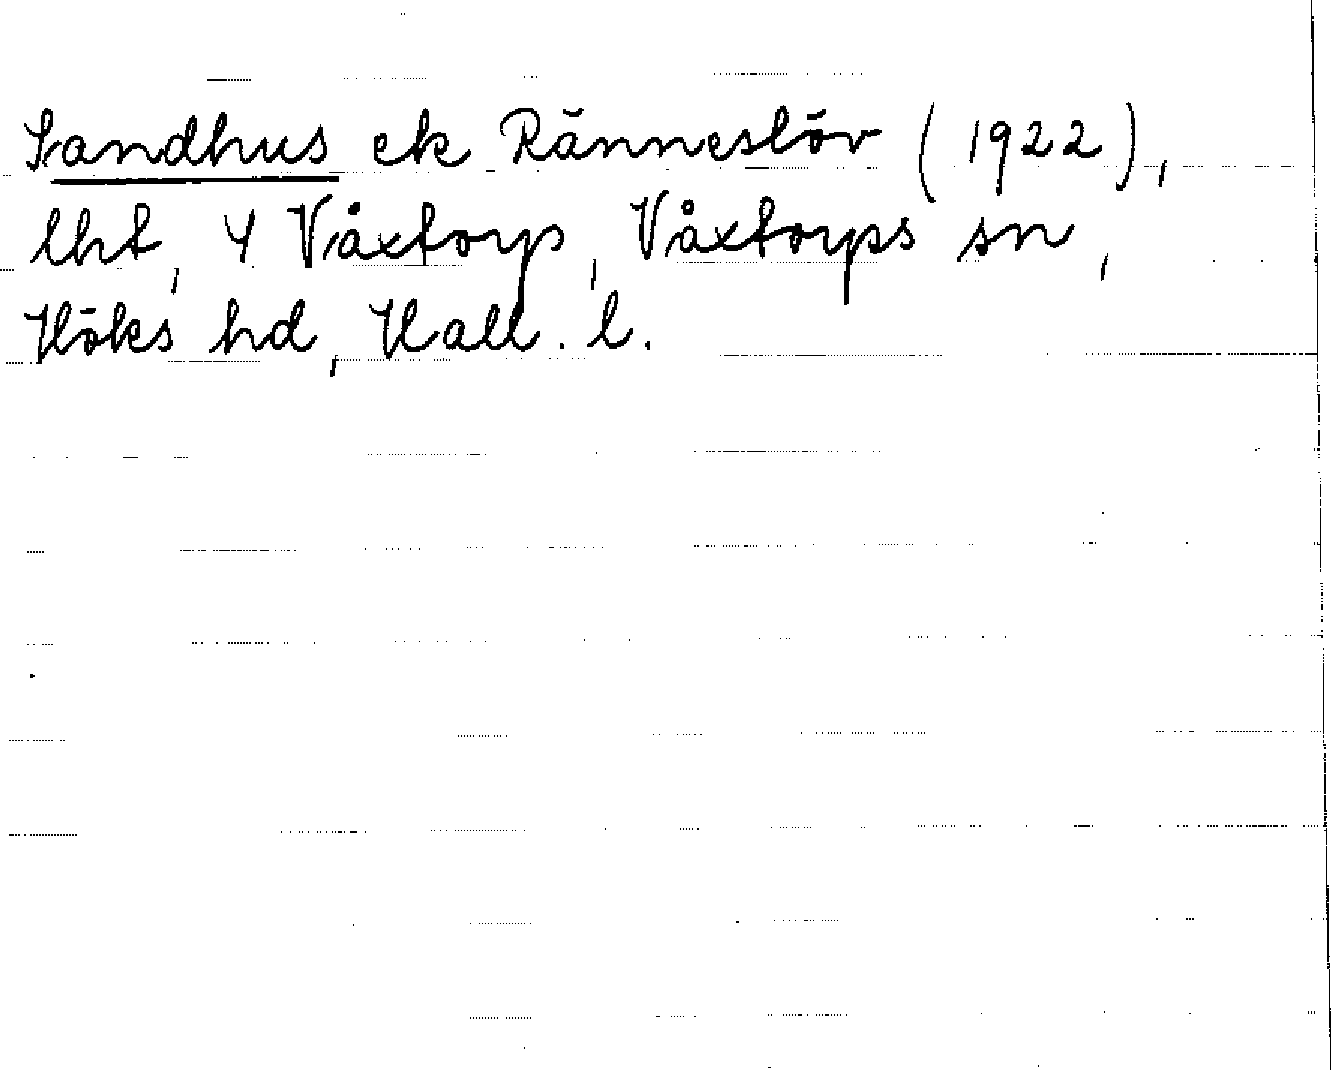 Sandhus ek Ränneslöv (1922),
lht, 4 Våxtorp, Våxtorps sn,
Höks hd, Hall. l.